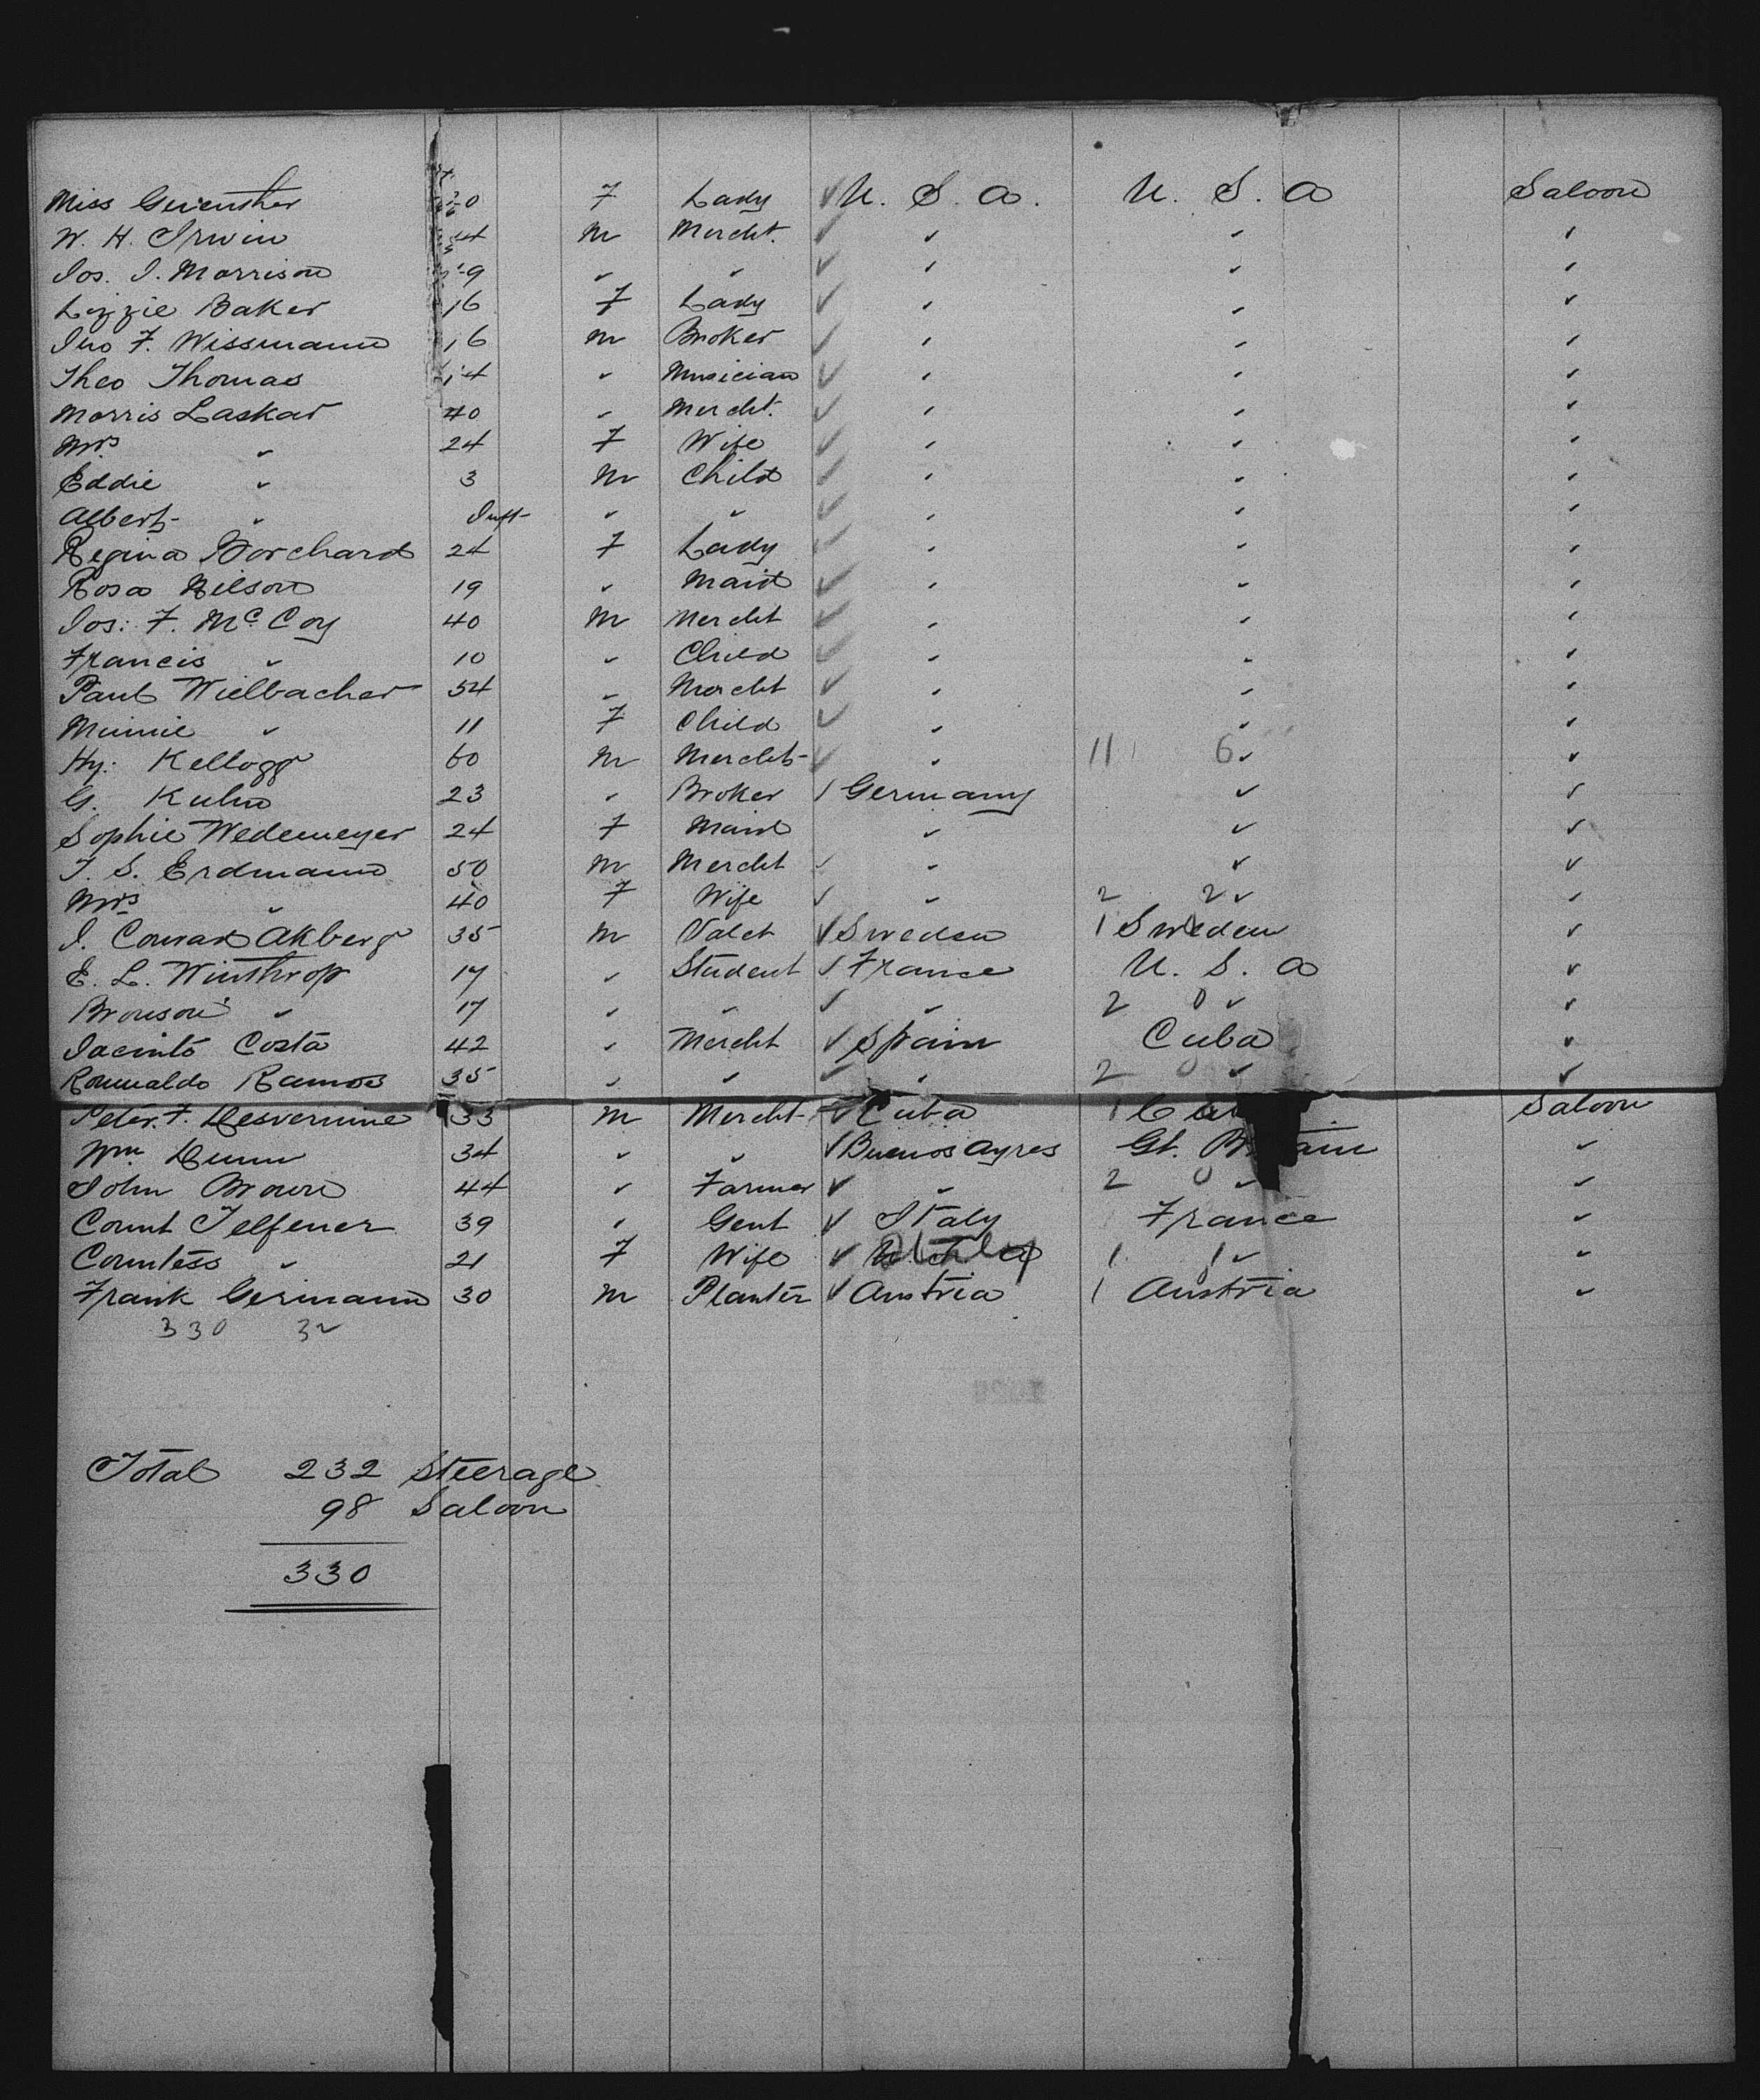 Miss Guenther F Lady ✓ U. S. A. U. S. A Saloon
W. H. Irwin M Mercht. ✓ " " "
Jos. I. Morrison " " ✓ " " "
Lizzie Baker 16 F Lady ✓ " " "
Jno F. Wissmann M Broker ✓ " " "
Theo Thomas " Musician ✓ " " "
Morris Laskar 40 " Mercht. ✓ " " "
Mrs " 24 F Wife ✓ " " "
Eddie " 3 M Child ✓ " " "
Albert " Inft " " ✓ " " "
Regina Borchard 24 F Lady ✓ " " "
Rosa Nilson 19 " Maid ✓ " " "
Jos: F. McCoy 40 M Mercht ✓ " " "
Francis " 10 " Child ✓ " " "
Paul Wielbacher 54 " Mercht ✓ " " "
Minnie " 11 F Child ✓ " " "
Hy: Kellogg 60 M Mercht ✓ " 11 6 " "
G. Kuhn 23 " Broker / Germany " "
Sophie Wedemeyer 24 F Maid " " "
J. S. Erdmann 50 M Mercht ✓ " " "
Mrs " 40 F Wife ✓ " 2 2 " "
J. Conrad Akberg 35 M Valet ✓ Sweden 1 Sweden "
E. L. Winthrop 17 " Student ✓ France U. S. A "
Bronson " 17 " " ✓ " 2 0 " "
Jacinto Costa 42 " Mercht ✓ Spain Cuba "
Romualdo Ramos 35 " " ✓ " 2 0 " "
Peter. F. Desvernine 33 M Mercht ✓ Cuba 1 Saloon
Wm Dunn 34 " " ✓ Buenos Ayres Gt. "
John Brown 44 " Farmer ✓ " 2 0 " "
Count Telfener 39 " Gent ✓ Italy France "
Countess " 21 F Wife ✓ Italy 1 1 " "
Frank Germann 30 M Planter ✓ Austria 1 Austria "
330 32
Total 232 Steerage
98 Saloon
330